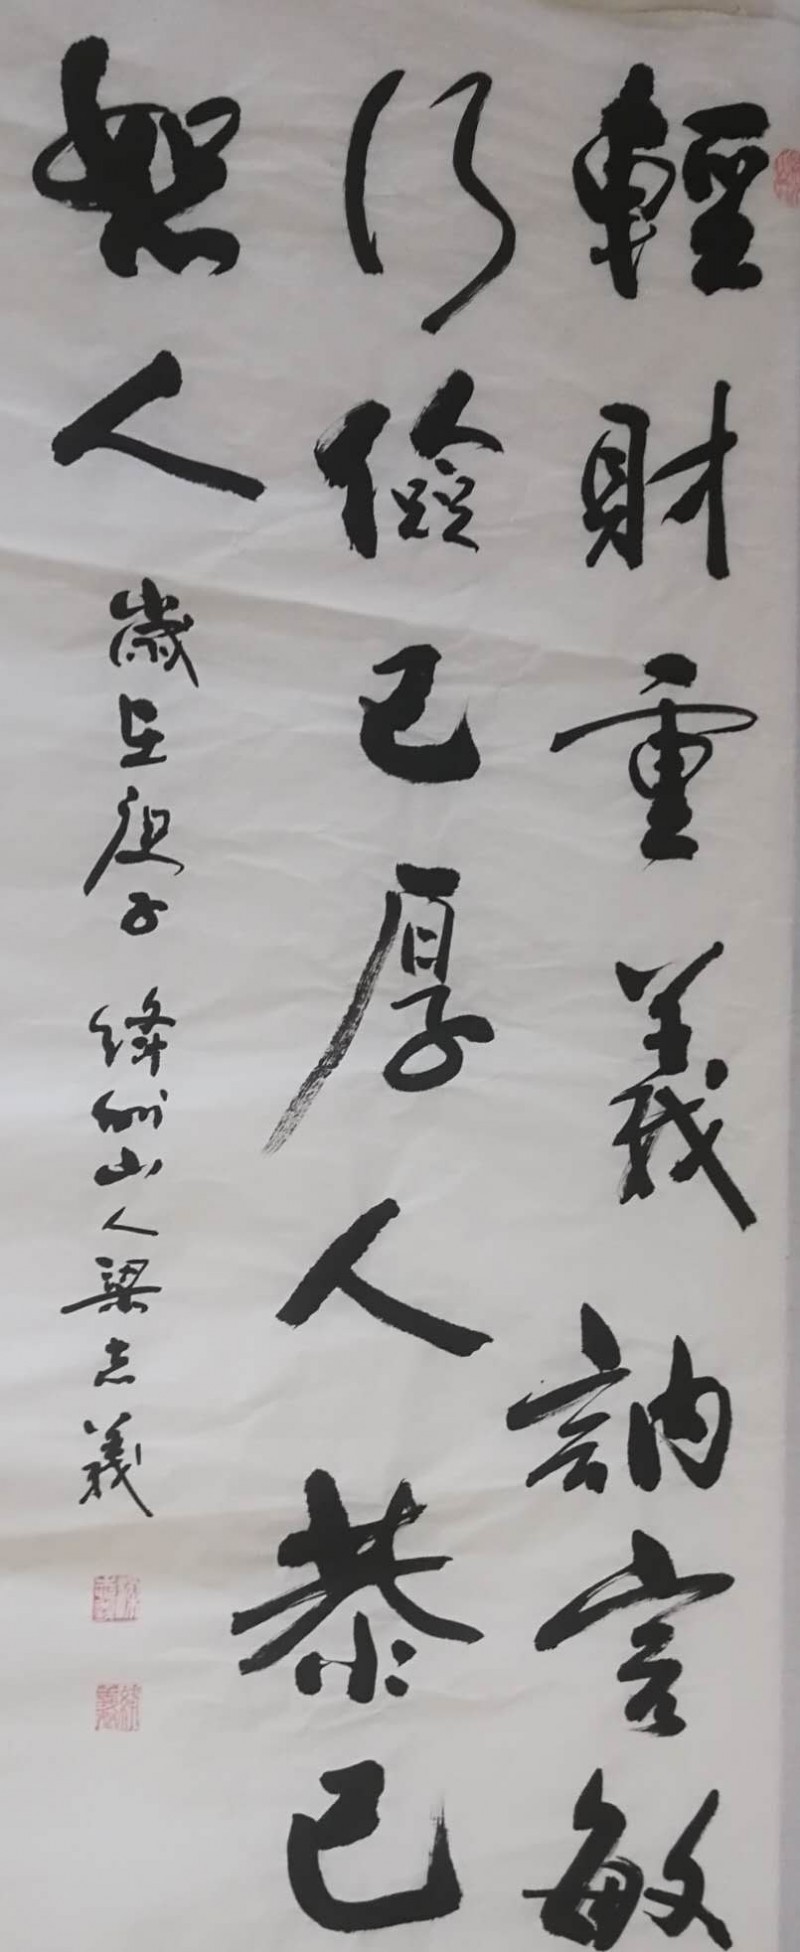 輕財重義訥言敏
行儉己厚人恭己
恕人
歲在庚子絳州山人梁志義